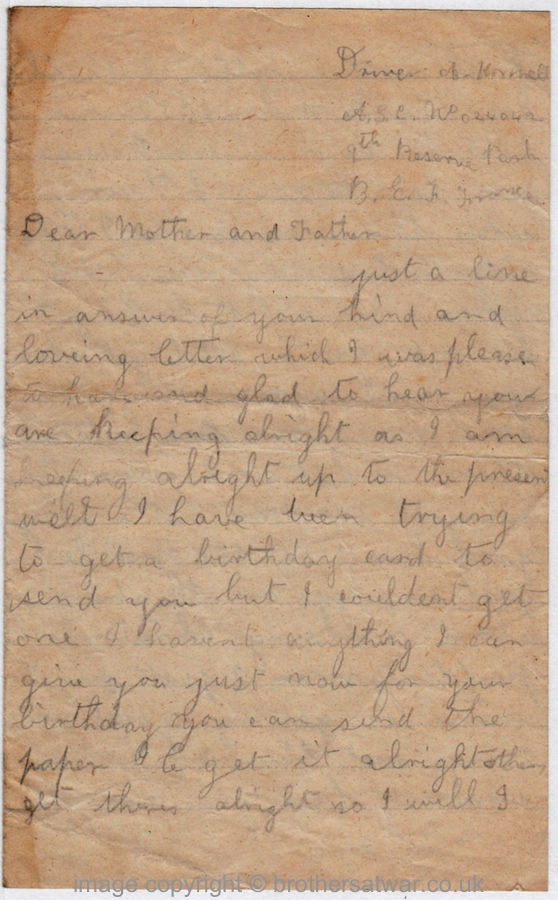 Driver A. Horsnell
A.S.C. No 024042
9th Reserve Park
B. E. F. France
Dear Mother and Father
just a line
in answer of your kind and
loveing letter which I was please
to have and glad to hear your
are keeping alright as I am
keeping alright up to the present
well I have been trying
to get a birthday card to
send you but I couldent get
one I havent anything I can
give you just now for your
birthday you can send the
paper I get it alright others
get theirs alright so I will I
image copyright © brothersatwar.co.uk